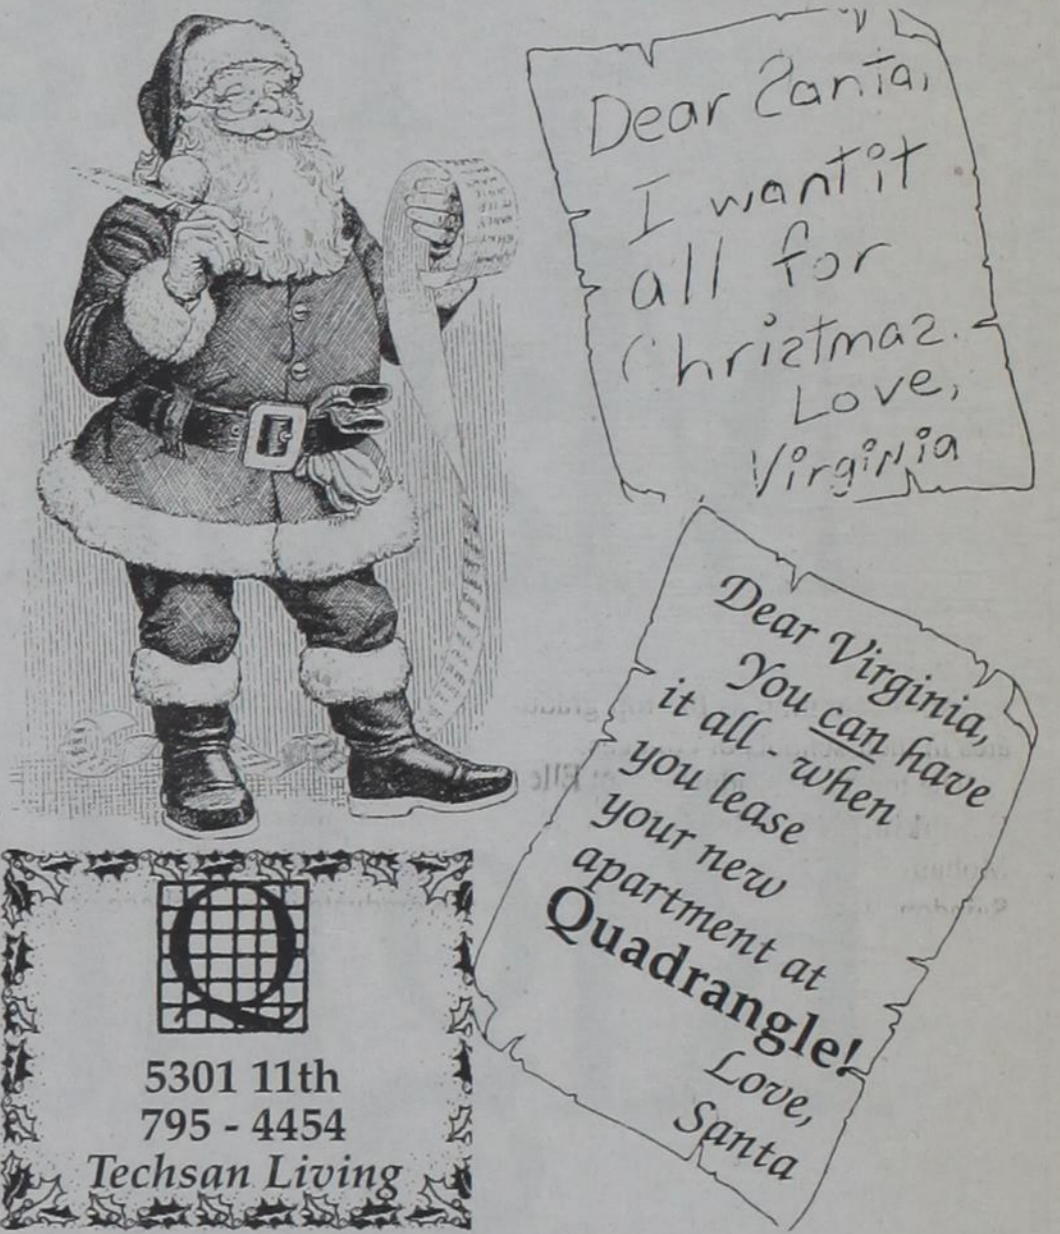 Dear Santa,
I want it
all for
Christmas.
Love,
Virginia
Dear Virginia,
You can have
it all - when
you lease
your new
apartment at
Quadrangle!
Love,
Santa
Q
5301 11th
795 - 4454
Techsan Living